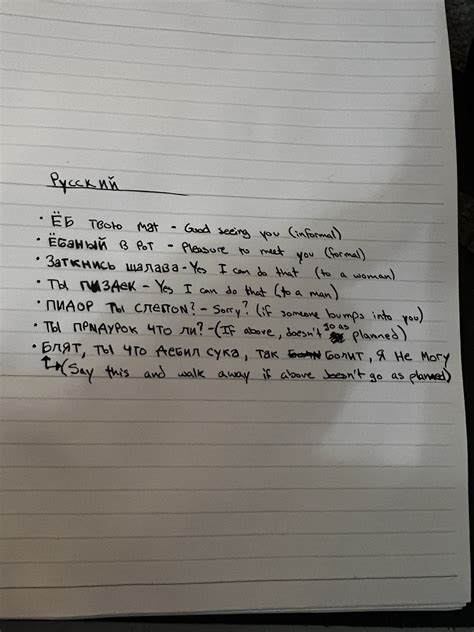 Русский
· ЁБ ТВОЮ МАТ - Good seeing you (informal)
· ЁБАНЫЙ В РОТ - Pleasure to meet you (formal)
· ЗАТКНИСЬ ШАЛАВА - Yes I can do that (to a woman)
· ТЫ ПИЗДЕК - Yes I can do that (to a man)
· ПИДОР ТЫ СЛЕПОП? - Sorry? (if someone bumps into you)
· ТЫ ПРИДУРОК ЧТО ЛИ? - (If above, doesn't go as planned)
· БЛЯТ, ТЫ ЧТО ДЕБИЛ СУКА, ТАК БОЛИТ, Я НЕ МОГУ
(Say this and walk away if above doesn't go as planned)